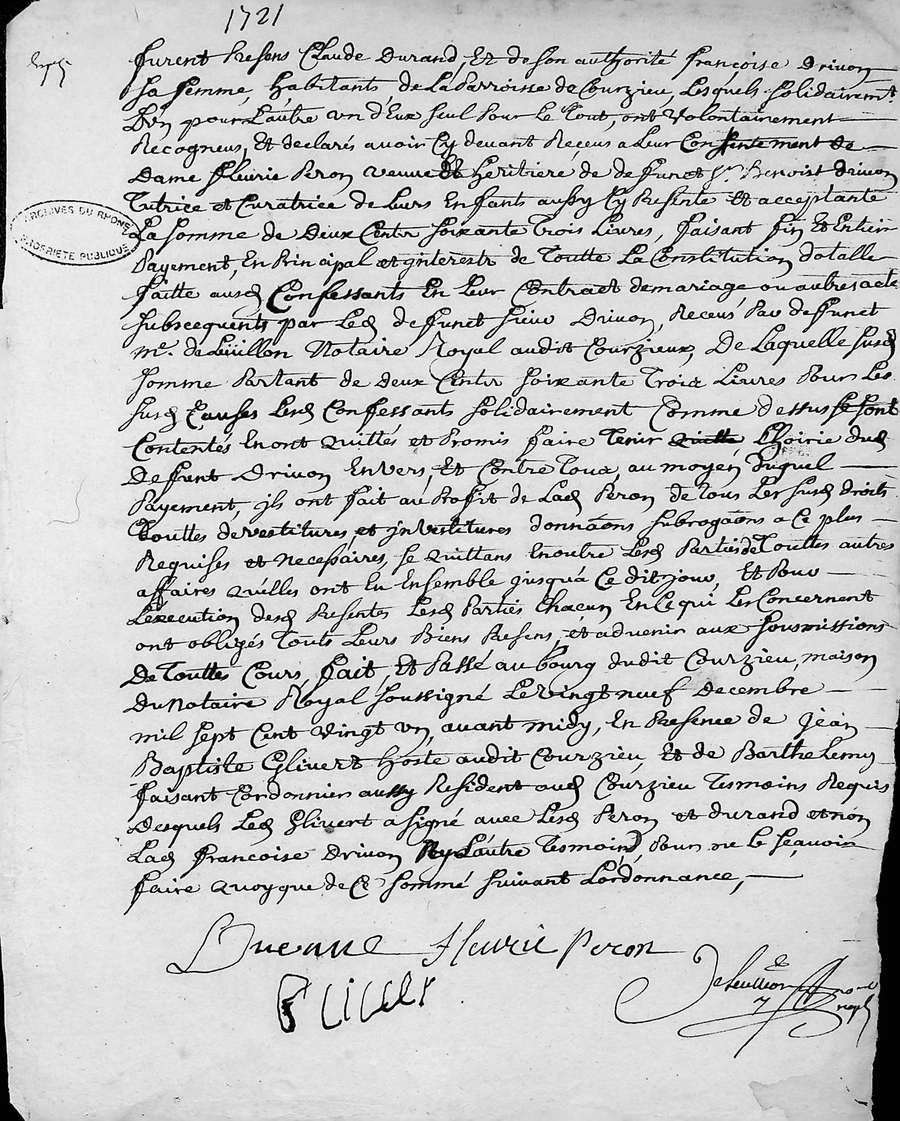 1721
furent Presens Claude Durand Et de son authorité françoise Drivon
sa femme, habitants de La Parroisse de Courzieu, Lesquels solidairemt
L'un pour Lautre un d'Eux seul Pour Le Tout, ont Volontairement
Recogneus, Et declarés avoir Cy devant Receus a Leur Consentement de
Dame fleurie Peron veuve Et heritiere de deffunct Sr Benoist drivon
Tutrice et Curatrice de Leurs Enfants aussy Cy Presente Et acceptante
La somme de Deux Cents soixante Trois Livres, faisant fin Et Entier
Payement, En Principal et interests de Toutte La Constitution dotalle
faitte ausd Confessants En Leur Contract de mariage ou autres acte
subsequents par Led deffunct sieur Drivon, Receus Par deffunct
me. deLüillon Notaire Royal audit Courzieux, De Laquelle susd
somme Partant de deux Cents soixante Trois Livres Pour Les
susd Causes Lesd Confessants solidairement Comme dessus se sont
Contentés En ont quittés et Promis faire Tenir quitte L'hoirie dud
Deffunt Drivon Envers, Et Contre Tous, au moyen duquel
Payement, ils ont fait au Profit de Lad Peron de Tous Les susd droits
Touttes devestitures et investitures donnâons subrogâons a Ce plus
Requises et necessaires, se quittans Enoutre Lesd Parties de Touttes autres
affaires qu'elles ont Eu Ensemble jusqu'a Ce dit jour, Et Pour
L'execution desd Presentes Lesd Parties Chacun En Ce qui Les Concernent
ont obligés Touts Leurs Biens Presens, et advenir aux sousmissions
De Touttes Cours, fait, Et Passé au bourg dudit Courzieu, maison
du Notaire Royal soussigné Le vingt neuf decembre
mil sept Cent vingt un, avant midy, En Presence de Jean
Baptiste Glivert hoste audit Courzieu, Et de Barthelemy
faisant Cordonnier aussy Resident aud Courzieu Tesmoins Requis
Desquels Led Glivert a signé avec Lesd Peron et durand et non
Lad françoise Drivon Ny L'autre Tesmoins, Pour ne le sçavoir
faire quoyque de Ce sommé suivant L'ordonnance,
ARCHIVES DU RHONE
PROPRIETE PUBLIQUE
fleurie peron
Deluillion